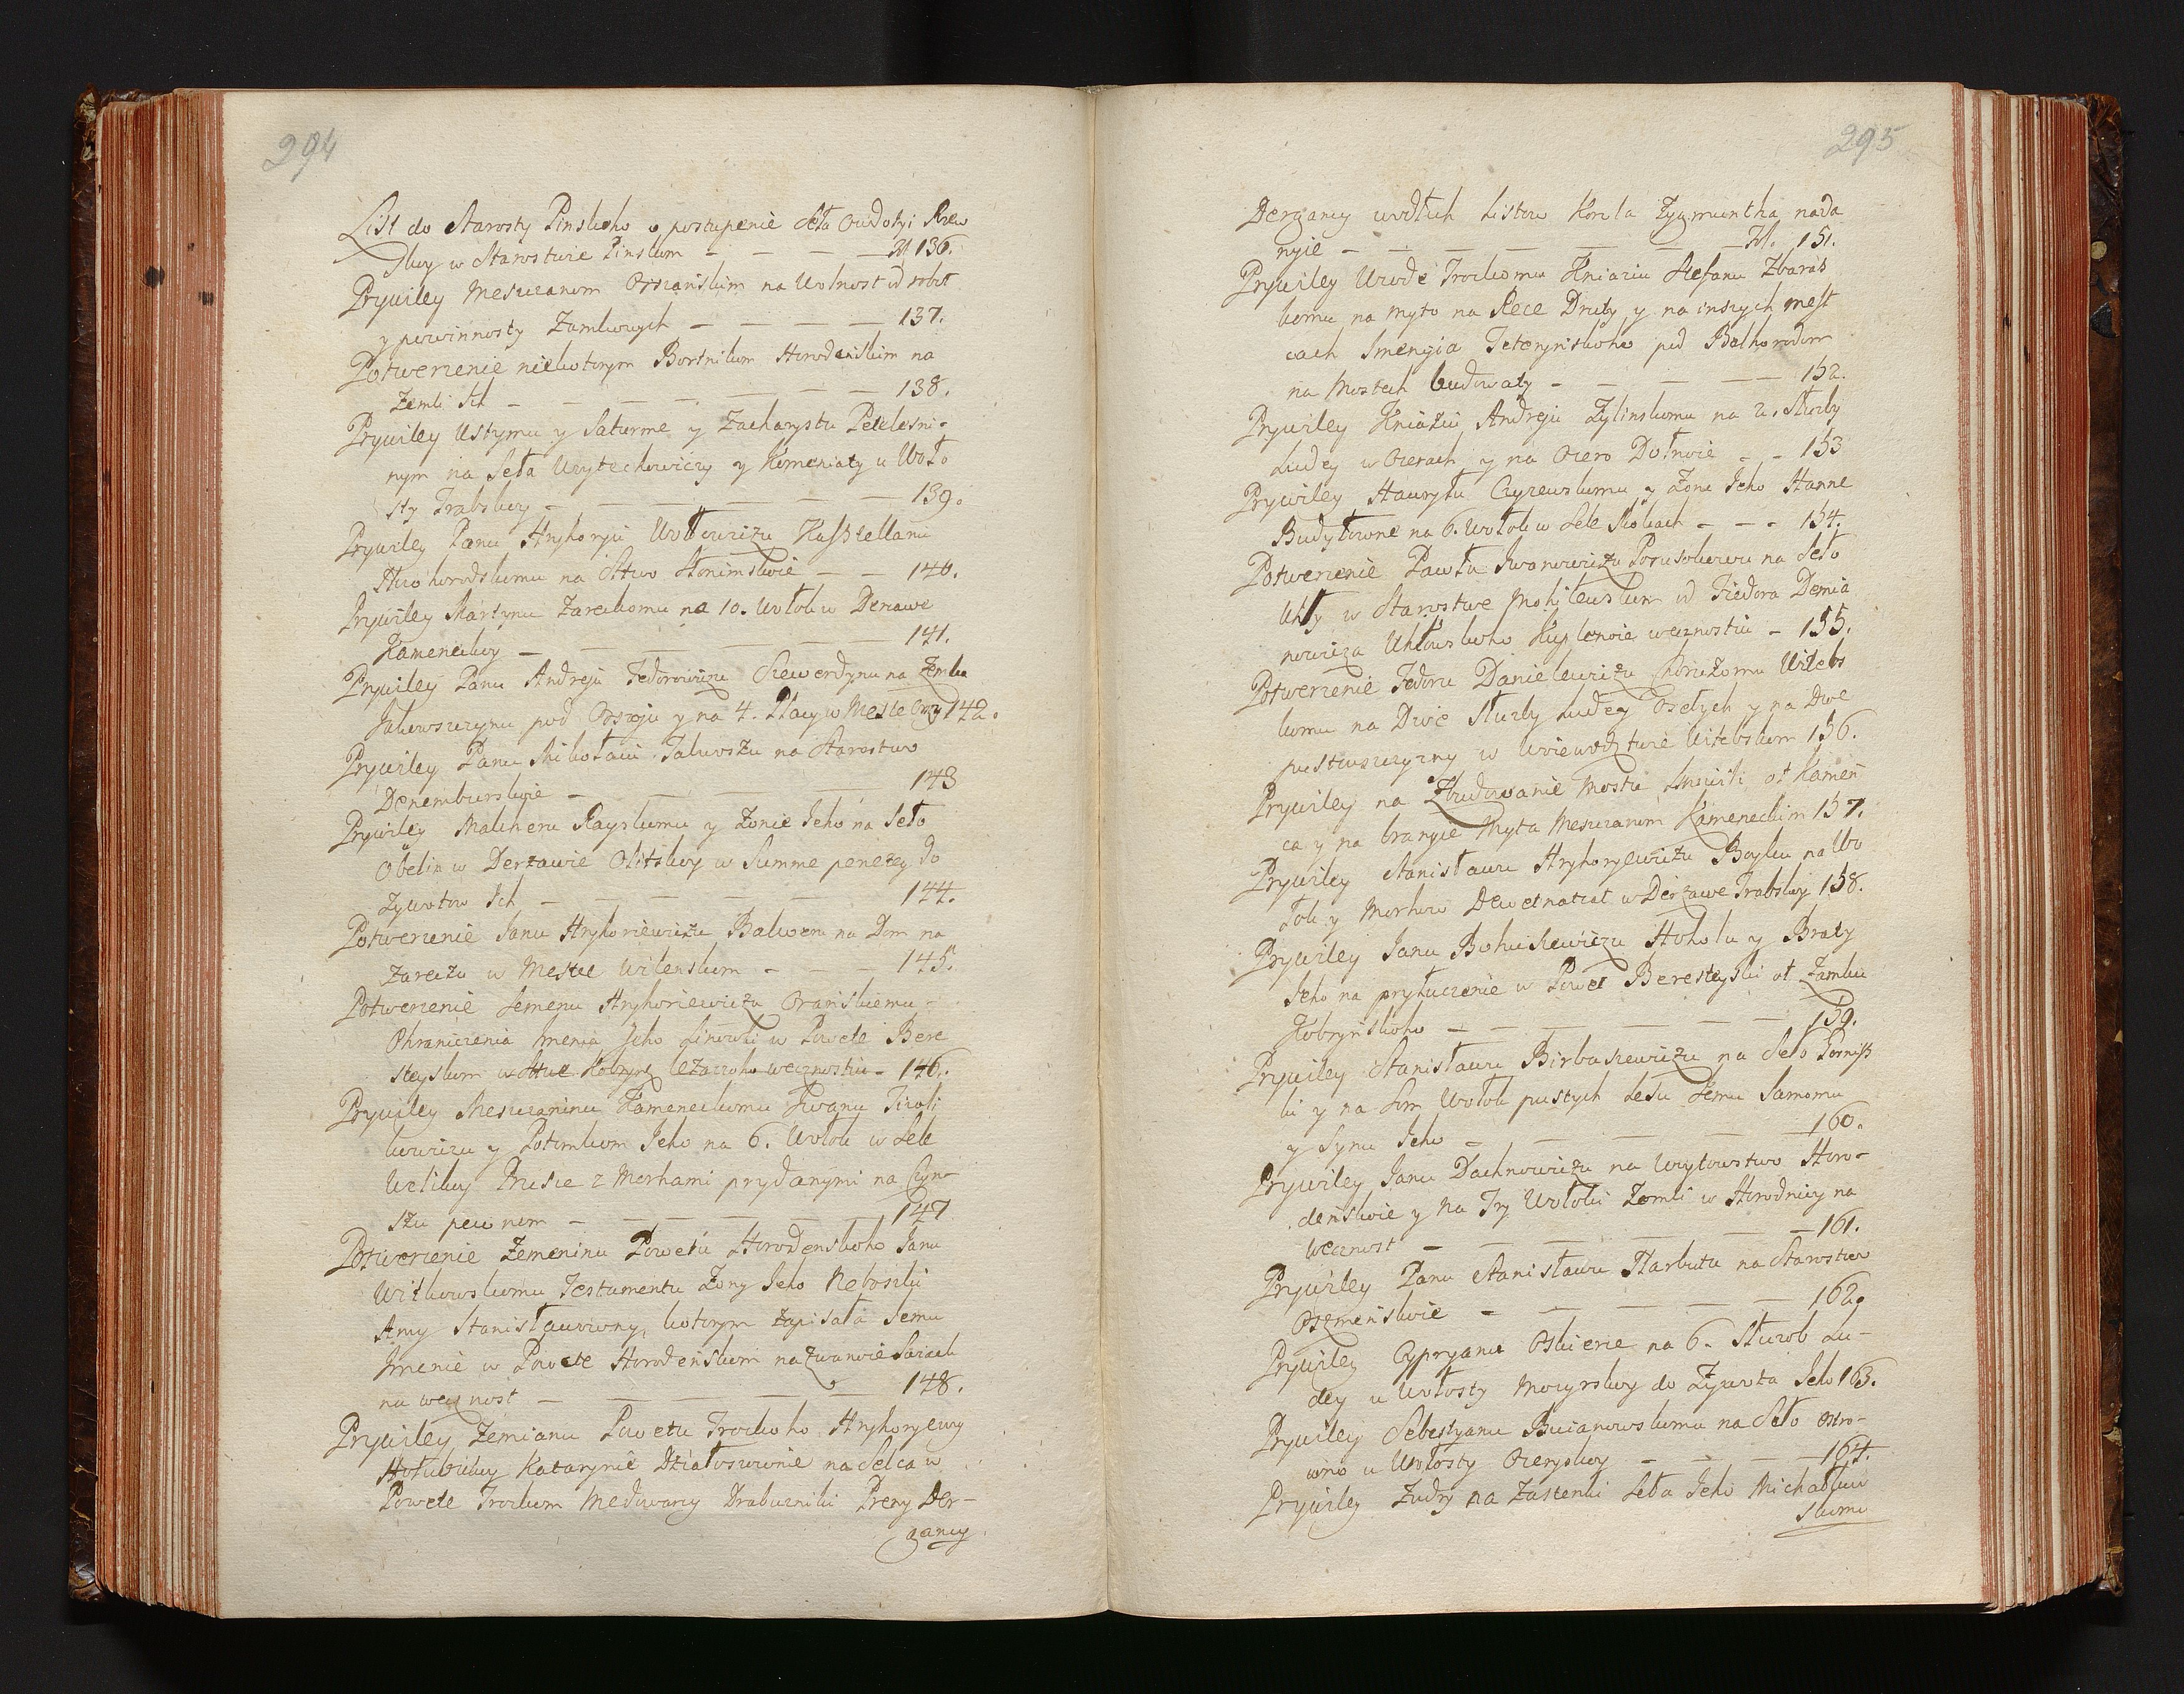 294
List do Starosty Pinskoho o postupenie Seła Owdotyi Rzew
skoy w Starostwie Pinskom - - - fol 136.
Prywiley Meszczanom Orszańskim na Wolnost od robot
y powinnosty Zamkowych - - - - 137.
Potwerzenie niekotorym Bortnikom Horodeńskim na
Zemli Ich - - - - - - 138.
Prywiley Ustymu y Saturme y Zacharystu Peleleśni-
nym na Seła Woytechowiczy y Komeniaty u Woło
sty Trabskoy - - - - - - 139.
Prywiley Panu Hryhoryu Wołłowiczu Kasztellanu
Nowohorodskomu na Sttwo Słonimskoie - - 140.
Prywiley Martynu Zareckomu na 10. Wołok w Derzawe
Kameneckoy - - - - - 141.
Prywiley Panu Andreju Fedorowiczu Siewerdynu na Zemlu
Jakowszczynu pod Orszoju y na 4. Placy w Meste Orszy 142.
Prywiley Panu Mikołaiu Talwoszu na Starostwo
Denemburskoie - - - - - 143
Prywiley Malcheru Rayskomu y Żonie Jeho na Seło
Obelin w Derżawie Olitskoy w Summe peniezey do
Żywotow Ich - - - - - 144.
Potwerzenie Janu Hryhoriewiczu Bakweru na Dom na
Zareczu w Mestie Wilenskom - - - 145.
Potwerzenie Semenu Hryhoriewiczu Orańskiemu -
Ohraniczenia Imenia Jeho Linowki w Powete Bere
steyskom w Sttwe Kobryn leżaczoho wecznostiu - 146.
Prywiley Meszczaninu Kameneckomu Iwanu Ticoli
kowiczu y Potomkom Jeho na 6. Wołok w Sele
Welikoy Rusie z Morhami prydanymi na Czyn-
szu pewnom - - - - 147
Potwerzenie Zemeninu Powetu Horodenskoho Janu
Witkowskomu Testamentu Żony Jeho Nebosztki
Anny Stanisławowny, kotorym zapisała Jemu
Imenie w Powete Horodeńskom nazwanoie Saisach
na wecznost - - - - - 148.
Prywiley Zemianu Powetu Trockoho Hryhoryewy
Hołubickoy Katarynie Działoszownie na Selca w
Powete Trockom Medwaricy Drabuzniki Preny Der-
gancy
295
Dergancy wodłuh Listow Korola Zygmuntha nada
nyie - - - - - fol. 151.
Prywiley Wojewode Trockomu Kniaziu Stefanu Zbaraż
komu na myto na Rece Druty y na inszych mest
cach Imenyia Teteryńskoho pod Bełhorodom
na Mostech budowaty - - - - 152.
Prywiley Kniaziu Andreju Żylinskomu na 2. Służby
Ludey w Ozerach y na Ozero Dołhoie - - 153
Prywiley Hawryłu Czyżewskomu y Żone Jeho Hanne
Budyłowne na 6. Wołok w Sele Skokach - - - 154.
Potwerzenie Pawłu Iwanowiczu Porusokweru na Seło
Uhły w Starostwe Mohylewskom od Fiedora Demia
nowicza Uhłowskoho Kuplenoie wecznostiu - 155.
Potwerzenie Fedoru Danielewiczu Choružomu Witebs
komu na Dwie Służby Ludey Osełych y na Dwe
pustowszczyzny w Woiewodztwie Witebskom 156.
Prywiley na Zbudowanie Mostu Lnoiski ot Kamen
ca y na branyie Myta Meszczanom Kameneckim 157.
Prywiley Stanisławu Hryhoryewiczu Boyku na Wo
łok y Morhow Dewetnatcat w Derżawe Trabskoy 158.
Prywiley Janu Bohuszewiczu Hoholu y Braty
Jeho na pryłuczenie w Powet Beresteyski ot Zamku
Kobryńskoho - - - - - 159.
Prywiley Stanisławu Birbaszewiczu na Seło Porniß
ki y na Sem Wołok pustych Lesu Jemu Samomu
y Synu Jeho - - - - 160.
Prywiley Janu Dachnowiczu na Woytowstwo Horo-
deńskoie y na Try Wołoki Zemli w Horodnicy na
Wecznost - - - - - 161.
Prywiley Panu Stanisławu Narbutu na Starostwo
Oszmenskoie - - - - - 162.
Prywiley Cypryanu Oskierce na 6. Służob Lu-
dey u Wołosty Mozyrskoy do Żywota Jeho 163.
Prywiley Sebestyanu Bucianowskomu na Seło Ostro-
wno u Wołosty Ozeryskoy - - - 164.
Prywiley Zudry na Zastenki Seła Jeho Michałkow
skomu